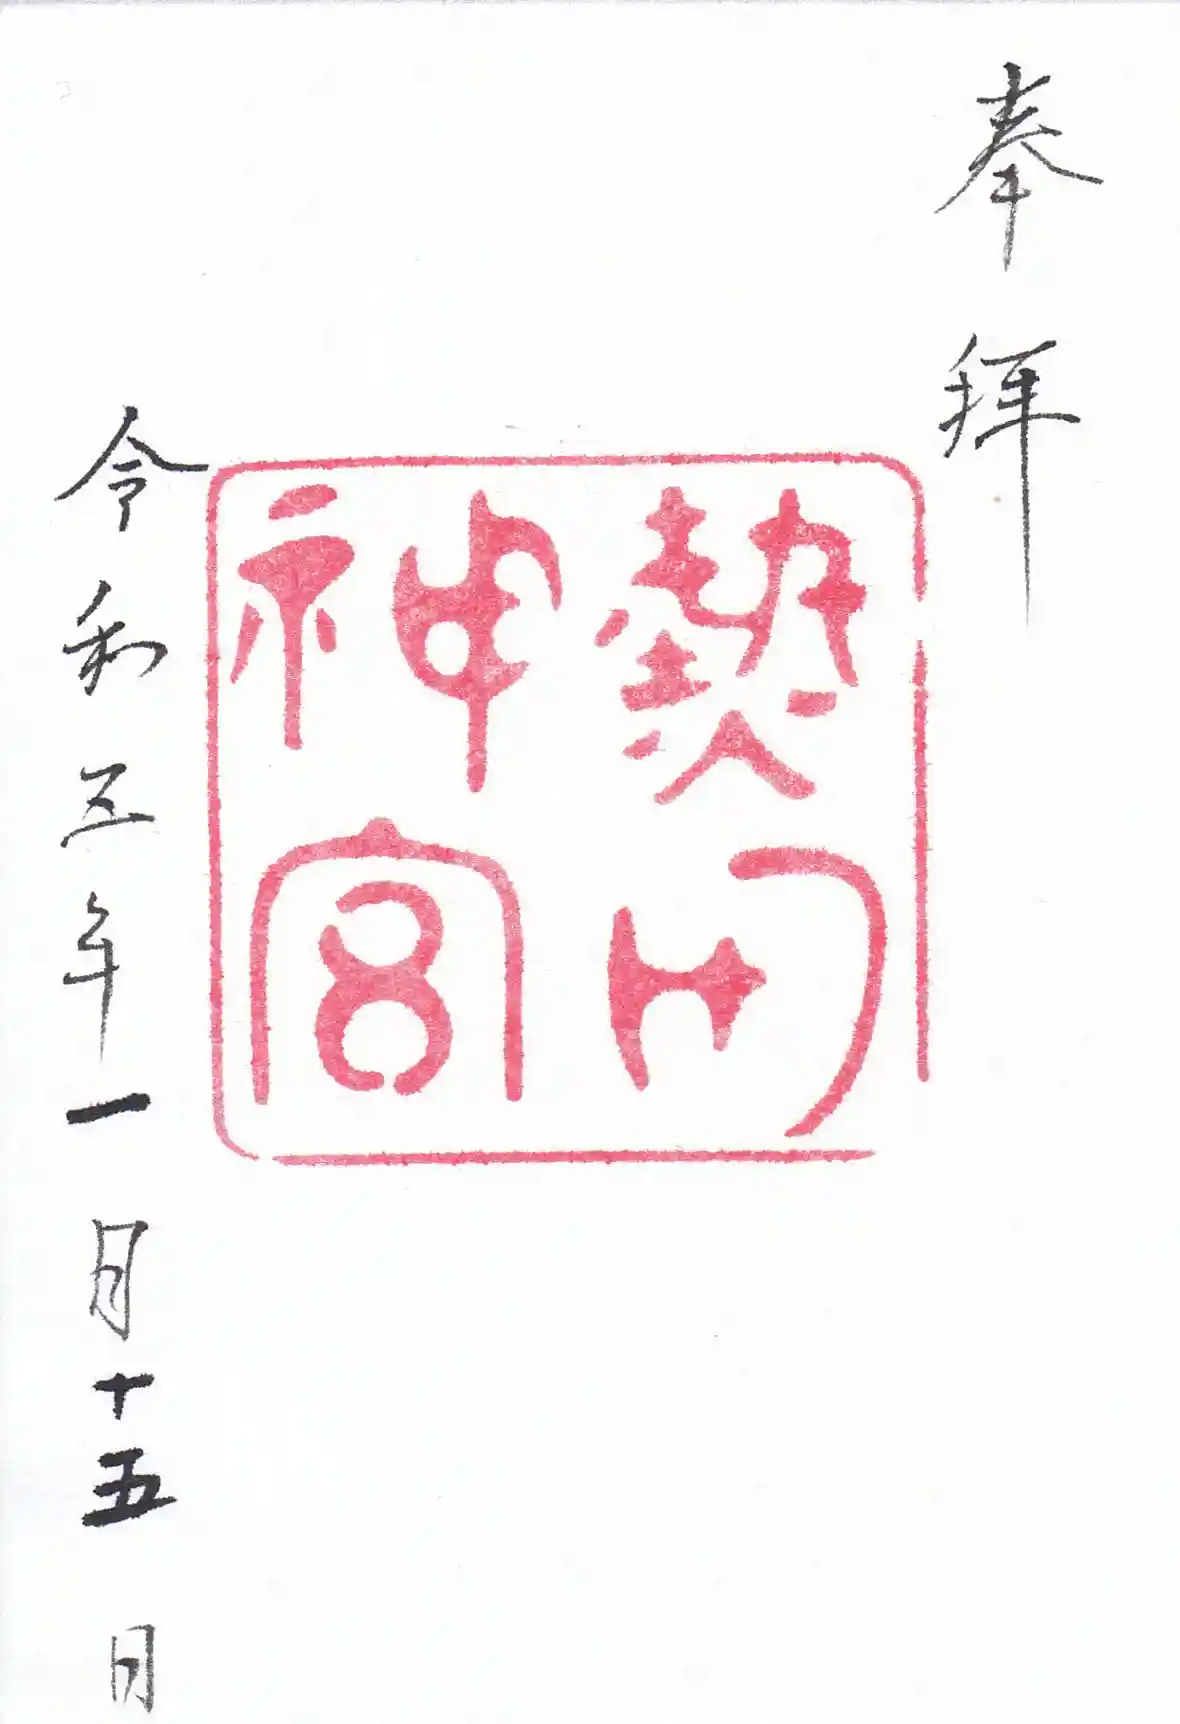 奉拝
熱田
神宮
令和五年一月十五日